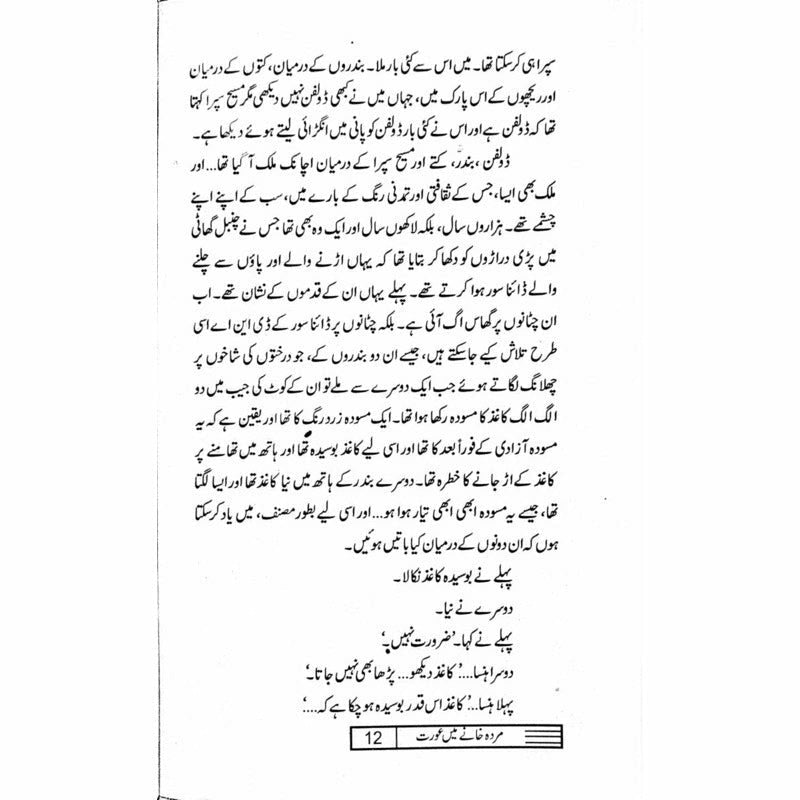 سپرا ہی کر سکتا تھا۔ میں اس سے کئی بار ملا۔ بندروں کے درمیان، کتوں کے درمیان
اور ریچھوں کے اس پارک میں، جہاں میں نے کبھی ڈولفن نہیں دیکھی مگر مسیح سپرا کہتا
تھا کہ ڈولفن ہے اور اس نے کئی بار ڈولفن کو پانی میں انگڑائی لیتے ہوئے دیکھا ہے۔
ڈولفن، بندر، کتے اور مسیح سپرا کے درمیان اچانک ملک آ گیا تھا... اور
ملک بھی ایسا، جس کے ثقافتی اور تمدنی رنگ کے بارے میں، سب کے اپنے اپنے
چشمے تھے۔ ہزاروں سال، بلکہ لاکھوں سال اور ایک وہ بھی تھا جس نے چنبل گھاٹی
میں پڑی دراڑوں کو دکھا کر بتایا تھا کہ یہاں اڑنے والے اور پاؤں سے چلنے
والے ڈائنا سور ہوا کرتے تھے۔ پہلے یہاں ان کے قدموں کے نشان تھے۔ اب
ان چٹانوں پر گھاس اگ آئی ہے۔ بلکہ چٹانوں پر ڈائنا سور کے ڈی این اے اسی
طرح تلاش کیے جا سکتے ہیں، جیسے ان دو بندروں کے، جو درختوں کی شاخوں پر
چھلانگ لگاتے ہوئے جب ایک دوسرے سے ملے تو ان کے کوٹ کی جیب میں دو
الگ الگ کاغذ کا مسودہ رکھا ہوا تھا۔ ایک مسودہ زرد رنگ کا تھا اور یقین ہے کہ یہ
مسودہ آزادی کے فوراً بعد کا تھا اور اسی لیے کاغذ بوسیدہ تھا اور ہاتھ میں تھامنے پر
کاغذ کے اڑ جانے کا خطرہ تھا۔ دوسرے بندر کے ہاتھ میں نیا کاغذ تھا اور ایسا لگتا
تھا، جیسے یہ مسودہ ابھی ابھی تیار ہوا ہو... اور اسی لیے بطور مصنف، میں یاد کر سکتا
ہوں کہ ان دونوں کے درمیان کیا باتیں ہوئیں۔
پہلے نے بوسیدہ کاغذ نکالا۔
دوسرے نے نیا۔
پہلے نے کہا۔ ’ضرورت نہیں۔‘
دوسرا ہنسا....’ کاغذ دیکھو... پڑھا بھی نہیں جاتا۔‘
پہلا ہنسا...’ کاغذ اس قدر بوسیدہ ہو چکا ہے کہ....‘
مردہ خانے میں عورت 12